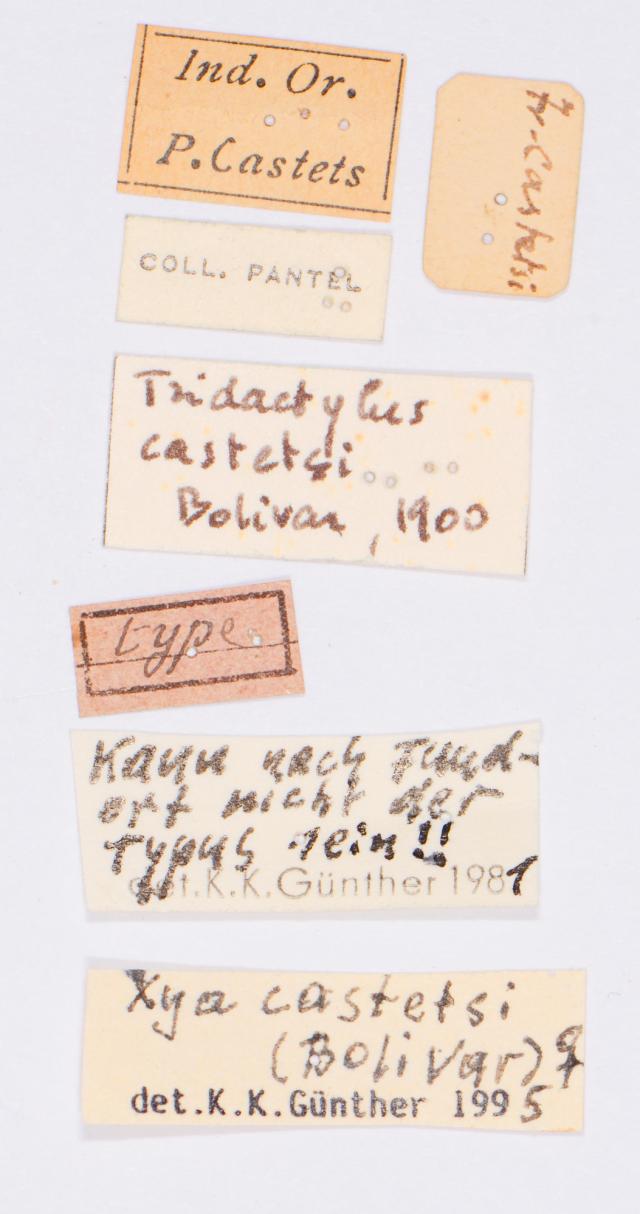 Ind. Or.
P. Castets
Tr. Castetsi
COLL. PANTEL
Tridactylus
castetsi
Bolivar, 1900
type
Kann nach Fund-
ort nicht der
Typus sein!!
det.K.K.Günther 1981
Xya castetsi
(Bolivar) ♀
det.K.K.Günther 1995